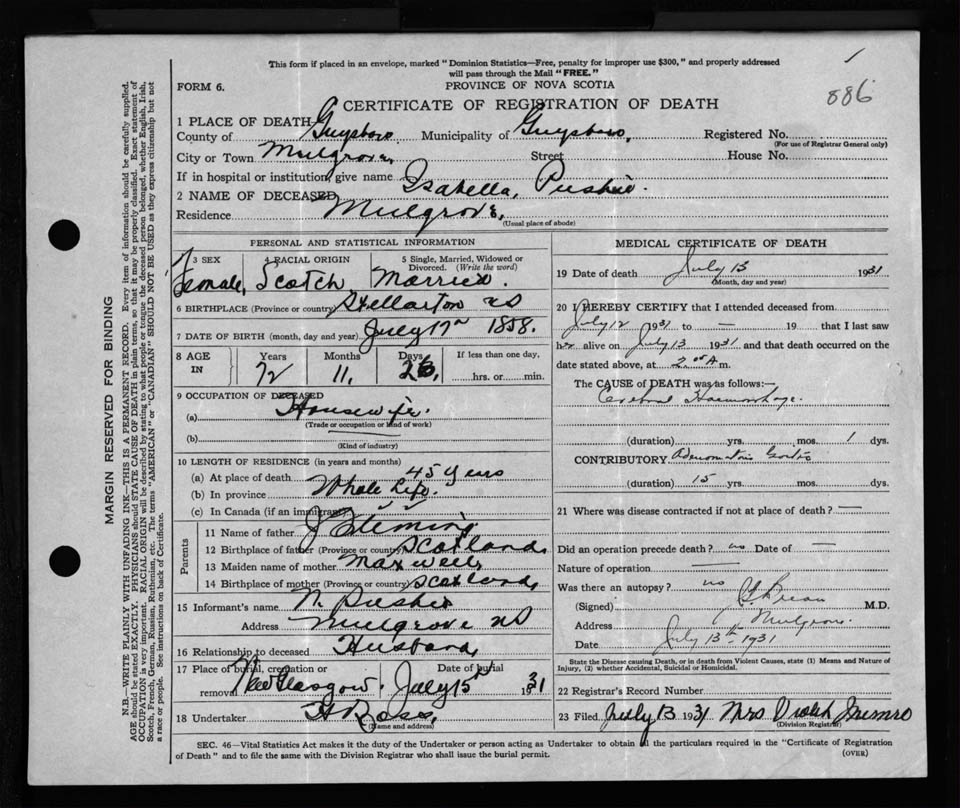 This form if placed in an envelope, marked "Dominion Statistics—Free, penalty for improper use $300," and properly addressed
will pass through the Mail "FREE."
FORM 6.
PROVINCE OF NOVA SCOTIA
886
CERTIFICATE OF REGISTRATION OF DEATH
1 PLACE OF DEATH
County of Guysboro Municipality of Guysboro, Registered No.
(For use of Registrar General only)
City or Town Mulgrove, Street House No.
If in hospital or institution, give name
2 NAME OF DECEASED Isabella, Pushie.
Residence Mulgrove,
(Usual place of abode)
PERSONAL AND STATISTICAL INFORMATION
3 SEX 4 RACIAL ORIGIN 5 Single, Married, Widowed or Divorced. (Write the word)
Female, Scotch Married.
6 BIRTHPLACE (Province or country) Stellarton NS
7 DATE OF BIRTH (month, day and year) July 17 1858.
8 AGE IN Years Months Days If less than one day,
72 11, 26, hrs. or min.
9 OCCUPATION OF DECEASED
(a) Housewife.
(Trade or occupation or kind of work)
(b)
(Kind of industry)
10 LENGTH OF RESIDENCE (in years and months)
(a) At place of death 45 years
(b) In province Whole Life.
(c) In Canada (if an immigrant)
Parents
11 Name of father J Fleming
12 Birthplace of father (Province or country) Scotland,
13 Maiden name of mother Maxwell,
14 Birthplace of mother (Province or country) Scotland,
15 Informant's name W. Pushie
Address Mulgrove NS
16 Relationship to deceased Husband,
17 Place of burial, cremation or removal New Glasgow, Date of burial July 15 1931
18 Undertaker A Ross,
(Name and address)
MEDICAL CERTIFICATE OF DEATH
19 Date of death July 13 1931
(Month, day and year)
20 I HEREBY CERTIFY that I attended deceased from
July 12 1931 to — 19 that I last saw
her alive on July 13 1931 and that death occurred on the
date stated above, at 2 A m.
The CAUSE of DEATH was as follows:—
Cerebral Haemorrhage.
(duration) yrs. mos. 1 dys.
CONTRIBUTORY Adenomatous Goitre
(duration) 15 yrs. mos. dys.
21 Where was disease contracted if not at place of death? —
Did an operation precede death? no Date of —
Nature of operation —
Was there an autopsy? no
(Signed) M.D.
Address Mulgrove
Date July 13th 1931
State the Disease causing Death, or in death from Violent Causes, state (1) Means and Nature of
Injury, (2) whether Accidental, Suicidal or Homicidal.
22 Registrar's Record Number
23 Filed July 13 1931 Mrs Violet Munro
(Division Registrar)
SEC. 46—Vital Statistics Act makes it the duty of the Undertaker or person acting as Undertaker to obtain all the particulars required in the "Certificate of Registration
of Death" and to file the same with the Division Registrar who shall issue the burial permit.
(OVER)
MARGIN RESERVED FOR BINDING
N.B.—WRITE PLAINLY WITH UNFADING INK—THIS IS A PERMANENT RECORD. Every item of information should be carefully supplied.
AGE should be stated EXACTLY. PHYSICIANS should STATE CAUSE OF DEATH in plain terms, so that it may be properly classified. Exact statement of
OCCUPATION is very important. RACIAL ORIGIN will be described by stating to what people or tongue the deceased person belonged, whether English, Irish,
Scotch, French, German, Russian, Ruthenian, etc. The terms "AMERICAN" or "CANADIAN" SHOULD NOT BE USED as they express citizenship but not
a race or people. See instructions on back of Certificate.